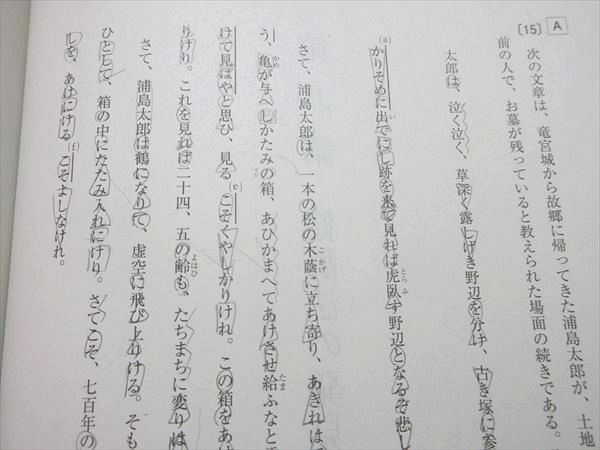 〔15〕 A
次の文章は、竜宮城から故郷に帰ってきた浦島太郎が、土地
前の人で、お墓が残っていると教えられた場面の続きである。
太郎は、泣く泣く、草深く露しげき野辺を分け、古き塚に参
(a)かりそめに出でにし跡を来て見れば虎臥す野辺となるぞ悲し
さて、浦島太郎は、一本の松の木蔭に立ち寄り、あきれは
う、亀が与へしかたみの箱、あひかまへてあけさせ給ふなと
けて見ばやと思ひ、見る(e)こそくやしかりけれ。この箱をあ
りけり。これを見れば二十四、五の齢も、たちまちに変りは
さて、浦島太郎は鶴になりて、虚空に飛び上りける。そも
ひとして、箱の中にたたみ入れにけり。さてこそ、七百年の
しを、あけにける(f)こそよしなけれ。
こかげ
とらふ
かめ
たま
よはひ